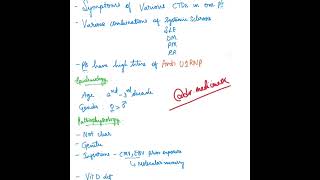 Symptoms of Various CTDs in one Pt
- Various combinations of Systemic Sclerosis
SLE
DM
PM
RA
- Pts have high titres of Anti U1RNP
Epidemiology
Age 2nd - 3rd decade
Gender ♀ > ♂
Pathophysiology
- Not clear
- Genetic
- Infections - CMV, EBV prior exposure
↳ molecular mimicry
- Vit D def
@dr.medicineX